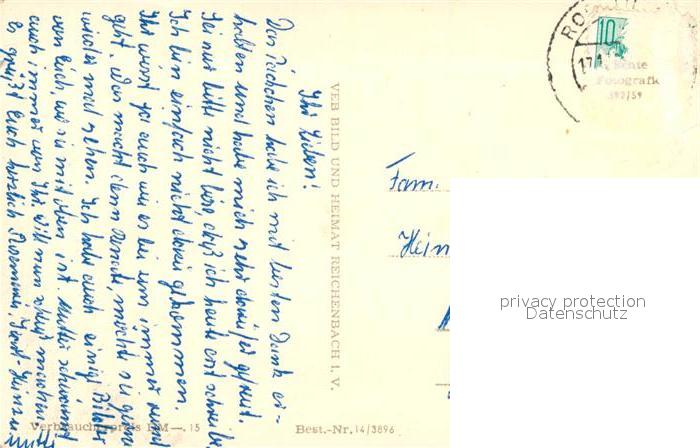 Ihr Lieben!
Das Päckchen habe ich mit besten Dank er-
halten und habe mich sehr darüber gefreut.
Seit mir bitte nicht böse, daß ich heute erst schreibe
Ich bin einfach nicht dazu gekommen.
Ihr wißt ja auch wie es bei uns immer rund
geht. Was macht denn Renate, möchte sie gern
wieder mal sehen. Ich habe auch einige Bilder
von Euch, wo sie mit oben ist. Mutter schwärmt
auch immer von Ihr. Will nun schluß machen
Es grüßt Euch herzlich Rosemarie, Horst-Heinz u.
Mutti
VEB BILD UND HEIMAT REICHENBACH I. V.
Verbraucherpreis DM —.15
Best.-Nr. 14/3896
10
RO
17.
Echte
Fotografie
392/59
Fam.
Hein
privacy protection
Datenschutz